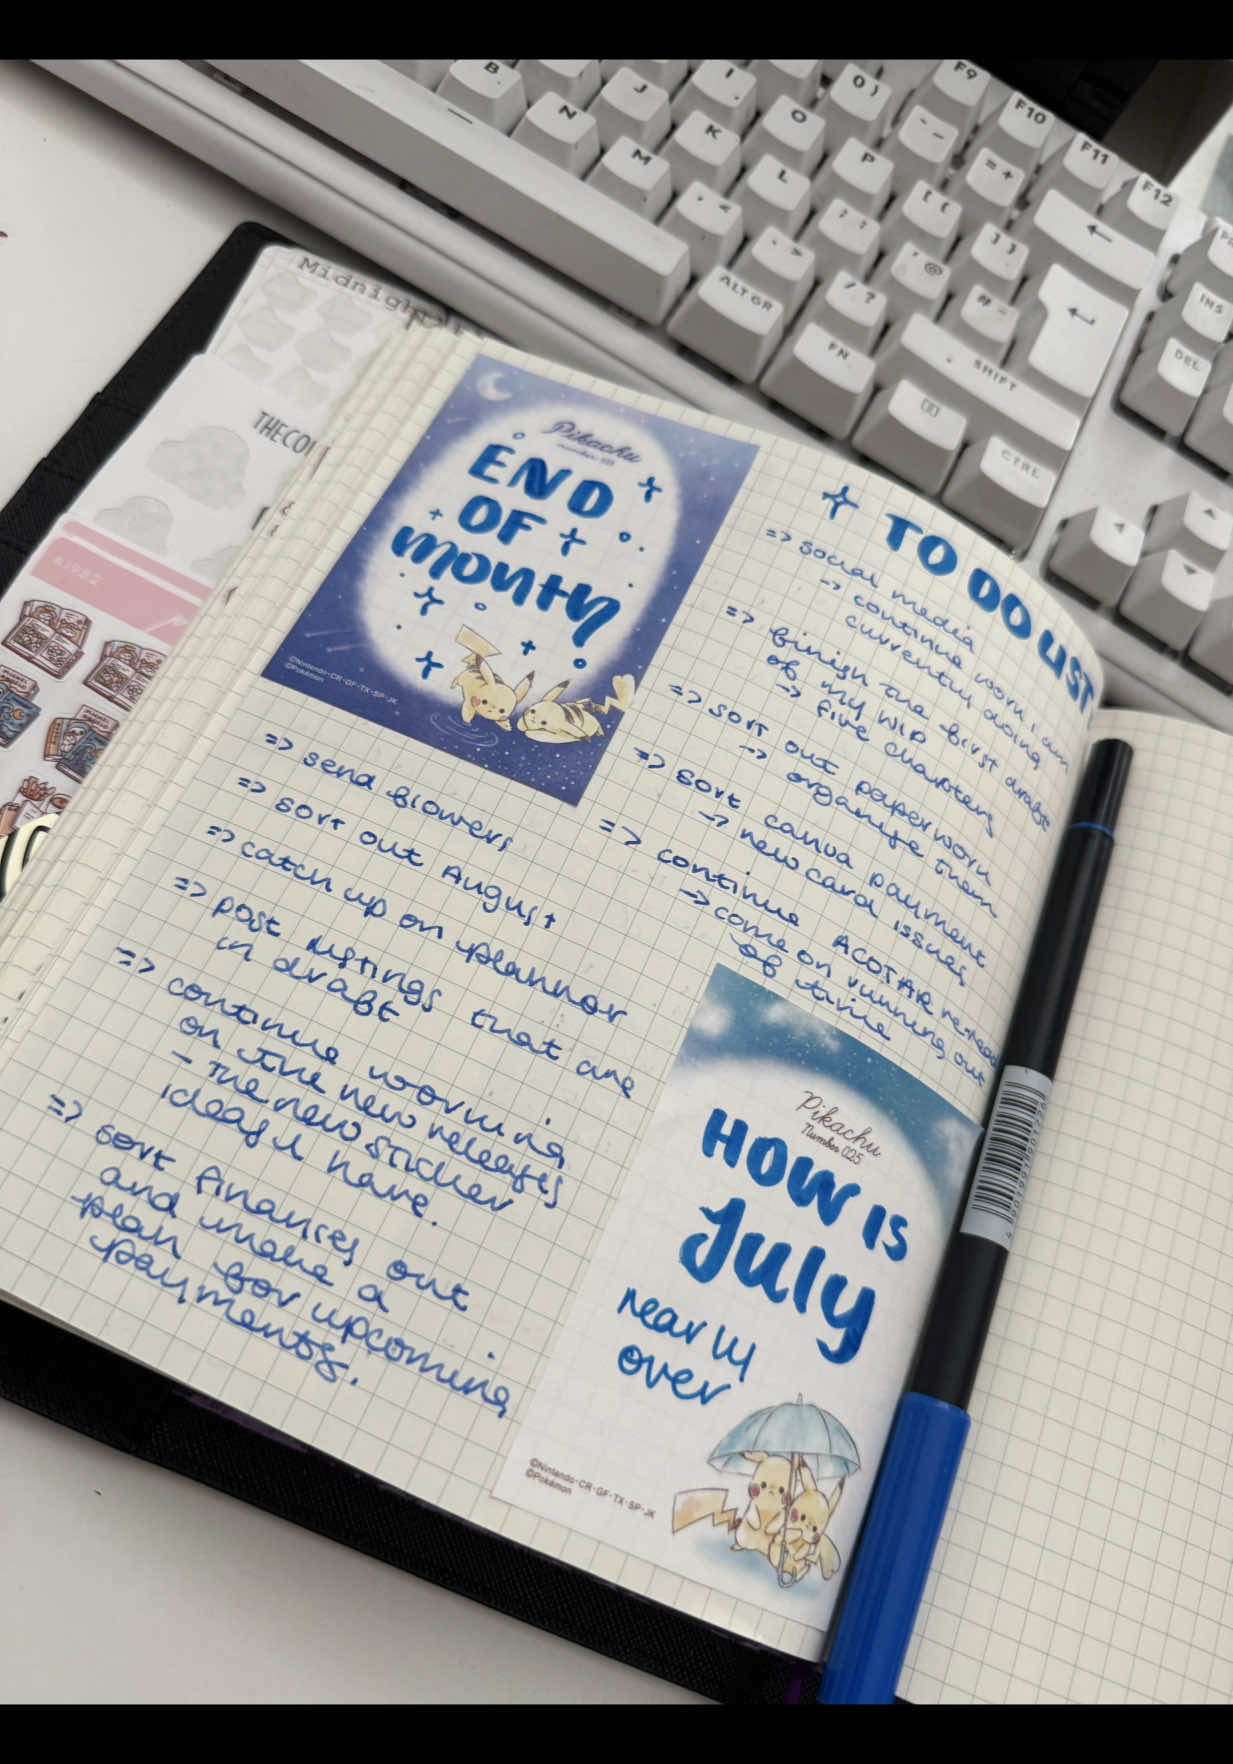 B
N
M
J
K
L
I
O
P
0 )
- _
= +
F9
F10
F11
F12
, <
. >
/ ?
; :
' @
# ~
[ {
] }
ALT GR
FN
SHIFT
CTRL
INS
DEL
THECO
#1982
Pikachu
number 025
END
OF
MONTH
©Nintendo・CR・GF・TX・SP・JK
©Pokémon
=> send flowers
=> sort out August
=> catch up on planner
=> post listings that are
in draft
=> continue working
on the new releases
- the new sticker
ideas I have.
=> sort finances out
and make a
plan for upcoming
payments.
TO DO LIST
=> social media
-> continue work I am
currently doing
=> finish the first draft
of my WIP
-> five chapters
=> sort out paperwork
-> organise them
=> sort canva payment
-> new card issues
=> continue ACOTAR re-read
-> come on running out
of time
Pikachu
Number 025
HOW IS
July
nearly
over
©Nintendo・CR・GF・TX・SP・JK
©Pokémon